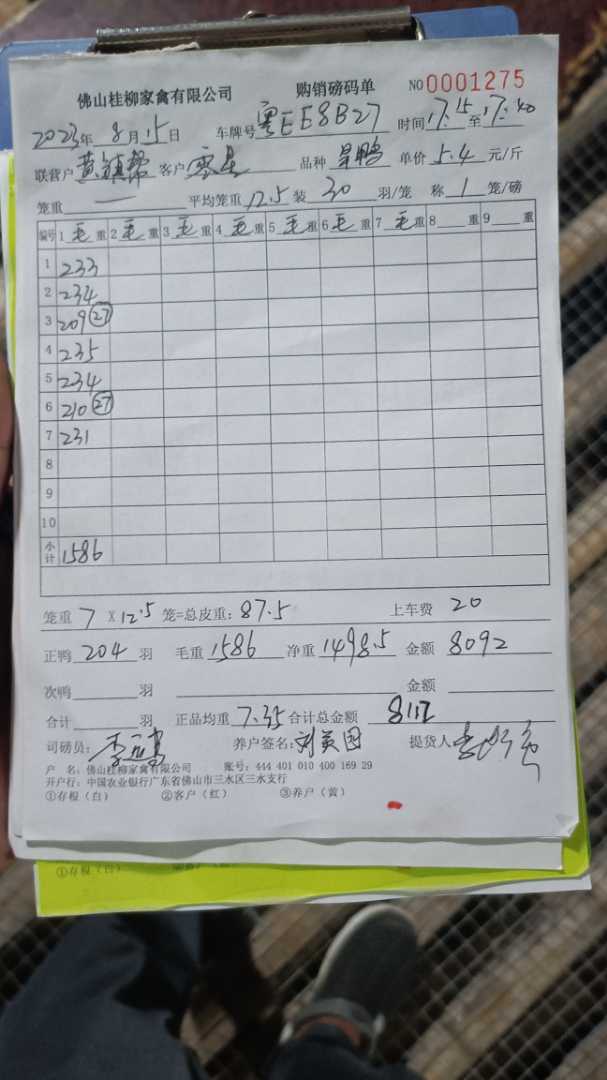 佛山桂柳家禽有限公司 购销磅码单 NO 0001275
2023年 8月15日 车牌号 粤EE8B27 时间 17:15 至 17:40
联营户 客户 零星 品种 旱鸭 单价 5.4 元/斤
笼重 — 平均笼重 12.5 装 30 羽/笼 称 1 笼/磅
编号 1 毛 重 2 毛 重 3 毛 重 4 毛 重 5 毛 重 6 毛 重 7 毛 重 8 重 9 重
1 233
2 234
3 209 27
4 235
5 234
6 210 27
7 231
8
9
10
小计 1586
笼重 7 X 12.5 笼=总皮重: 87.5 上车费 20
正鸭 204 羽 毛重 1586 净重 1498.5 金额 8092
次鸭 羽 金额
合计 羽 正品均重 7.35 合计总金额 8112
司磅员: 养户签名: 刘英国 提货人
户 名: 佛山桂柳家禽有限公司 账号: 444 401 010 400 169 29
开户行: 中国农业银行广东省佛山市三水区三水支行
①存根（白） ②客户（红） ③养户（黄）
①存根（白）